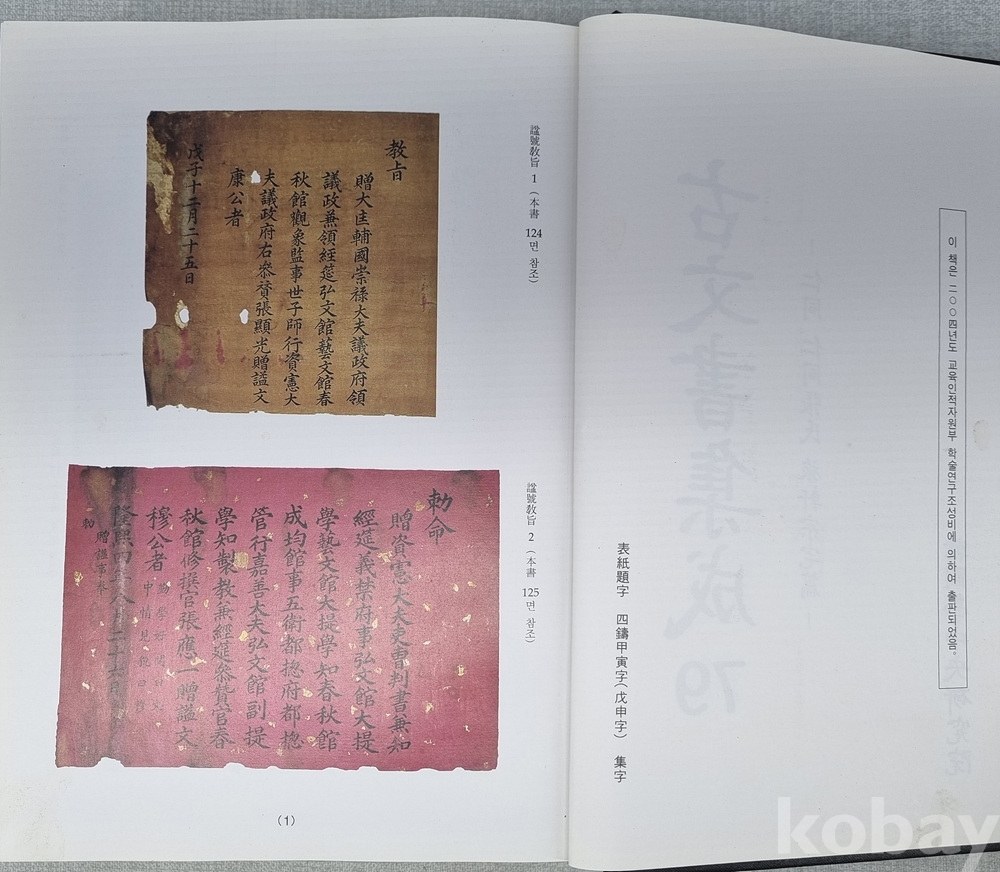 이 책은 二○○四년도 교육인적자원부 학술연구조성비에 의하여 출판되었음.
表紙題字 四鑄甲寅字(戊申字) 集字
諡號敎旨 1 (本書 124면 참조)
教旨
贈大匡輔國崇祿大夫議政府領
議政兼領經筵弘文館藝文館春
秋館觀象監事世子師行資憲大
夫議政府右參贊張顯光贈諡文
康公者
戊子十二月二十五日
諡號敎旨 2 (本書 125면 참조)
勅命
贈資憲大夫吏曹判書兼知
經筵義禁府事弘文館大提
學藝文館大提學知春秋館
成均館事五衛都摠府都摠
管行嘉善大夫弘文館副提
學知製教兼經筵參贊官春
秋館修撰官張應一贈諡文
穆公者
勤學好問曰文
中情見貌曰穆
隆熙四年八月二十六日
贈諡事奉
勅
(1)
古文書集成 79
kobay